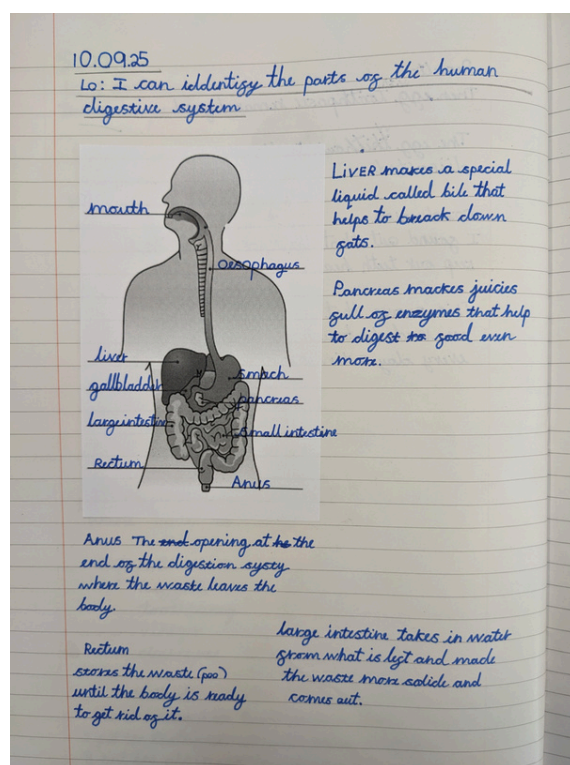 10.09.25
Lo: I can iddentify the parts of the human
digestive system
mouth
Oesophagus
liver
gallbladder
large intestin
Rectum
smach
pancreas
small intestine
Anus
LIVER makes a special
liquid called bile that
helps to breack down
fats.
Pancreas mackes juicies
full of enzymes that help
to digest the food even
more.
Anus The end opening at the
end of the digestion systy
where the waste leaves the
body.
Rectum
stores the waste (poo)
until the body is ready
to get rid of it.
large intestine takes in water
from what is left and made
the waste more solide and
comes out.